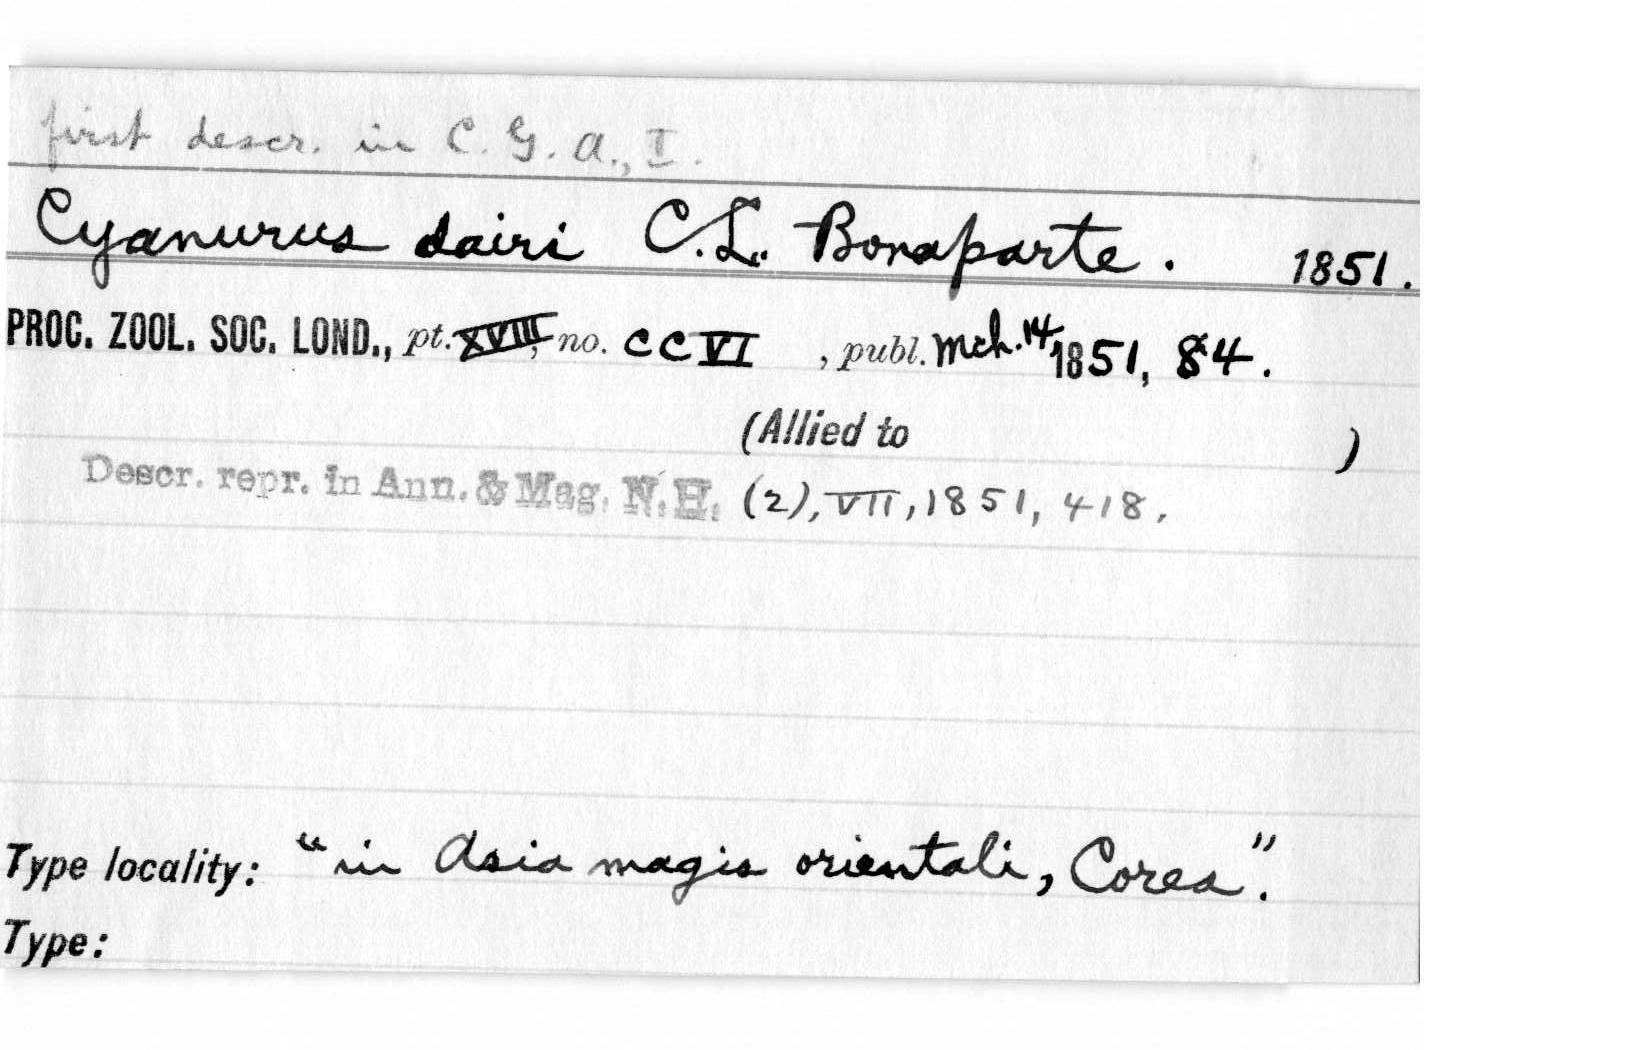 first descr. in C. G. A., I.
Cyanurus dairi C.L. Bonaparte. 1851.
PROC. ZOOL. SOC. LOND., pt. XVIII, no. CCVI , publ. Mch. 14, 1851, 84.
(Allied to )
Descr. repr. in Ann. & Mag. N.H. (2), VII, 1851, 418.
Type locality: "in Asia magis orientali, Corea".
Type: